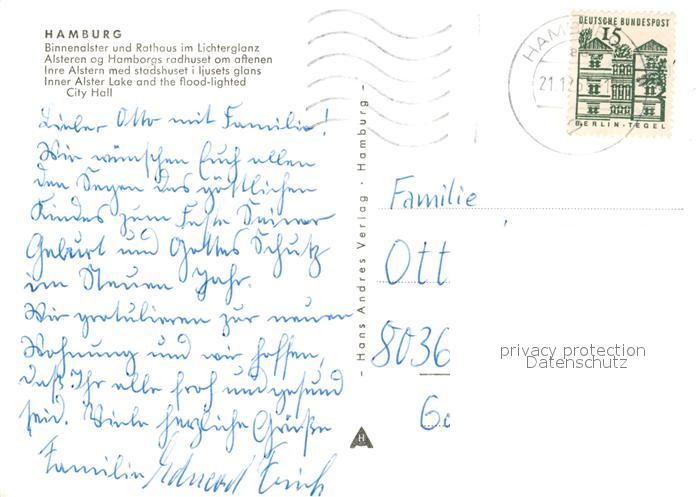 HAMBURG
Binnenalster und Rathaus im Lichterglanz
Alsteren og Hamborgs radhuset om aftenen
Inre Alstern med stadshuset i ljusets glans
Inner Alster Lake and the flood-lighted
City Hall
Lieber Otto mit Familie!
Wir wünschen Euch allen
den Segen des göttlichen
Kindes zum Feste Seiner
Geburt und Gottes Schutz
im Neuen Jahr.
Wir gratulieren zur neuen
Wohnung und wir hoffen,
daß Ihr alle froh und gesund
seid. Viele herzliche Grüße
Familie Eduard
- Hans Andres Verlag · Hamburg -
H
HAMBU
21.12
DEUTSCHE BUNDESPOST
15
BERLIN-TEGEL
Familie
Ott
8036
privacy protection
Datenschutz